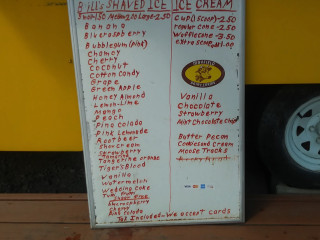 Bill's SHAVED ICE ICE CREAM
Small 1.50 Medium 2.00 Large 2.50
Banana
Blueraspberry
Bubblegum (Pink)
Chamoy
Cherry
Coconut
Cotton Candy
Grape
Green Apple
Honey Almond
Lemon-Lime
Mango
Peach
Pina Colada
Pink Lemonade
Rootbeer
Sourcream
Strawberry
Tamarind
Tangerine orange
Tiger's Blood
Vanilla
Watermelon
Wedding Cake
Cherry
Pina Colada
Cup (1 scoop) 2.50
regular Cone - 2.50
Waffle cone - 3.50
extra scoop 1.00
Vanilla
Chocolate
Strawberry
Mint Chocolate Chip
Butter Pecan
Cookies and Cream
Moose Tracks
Rocky Road
Tax Included - We accept cards